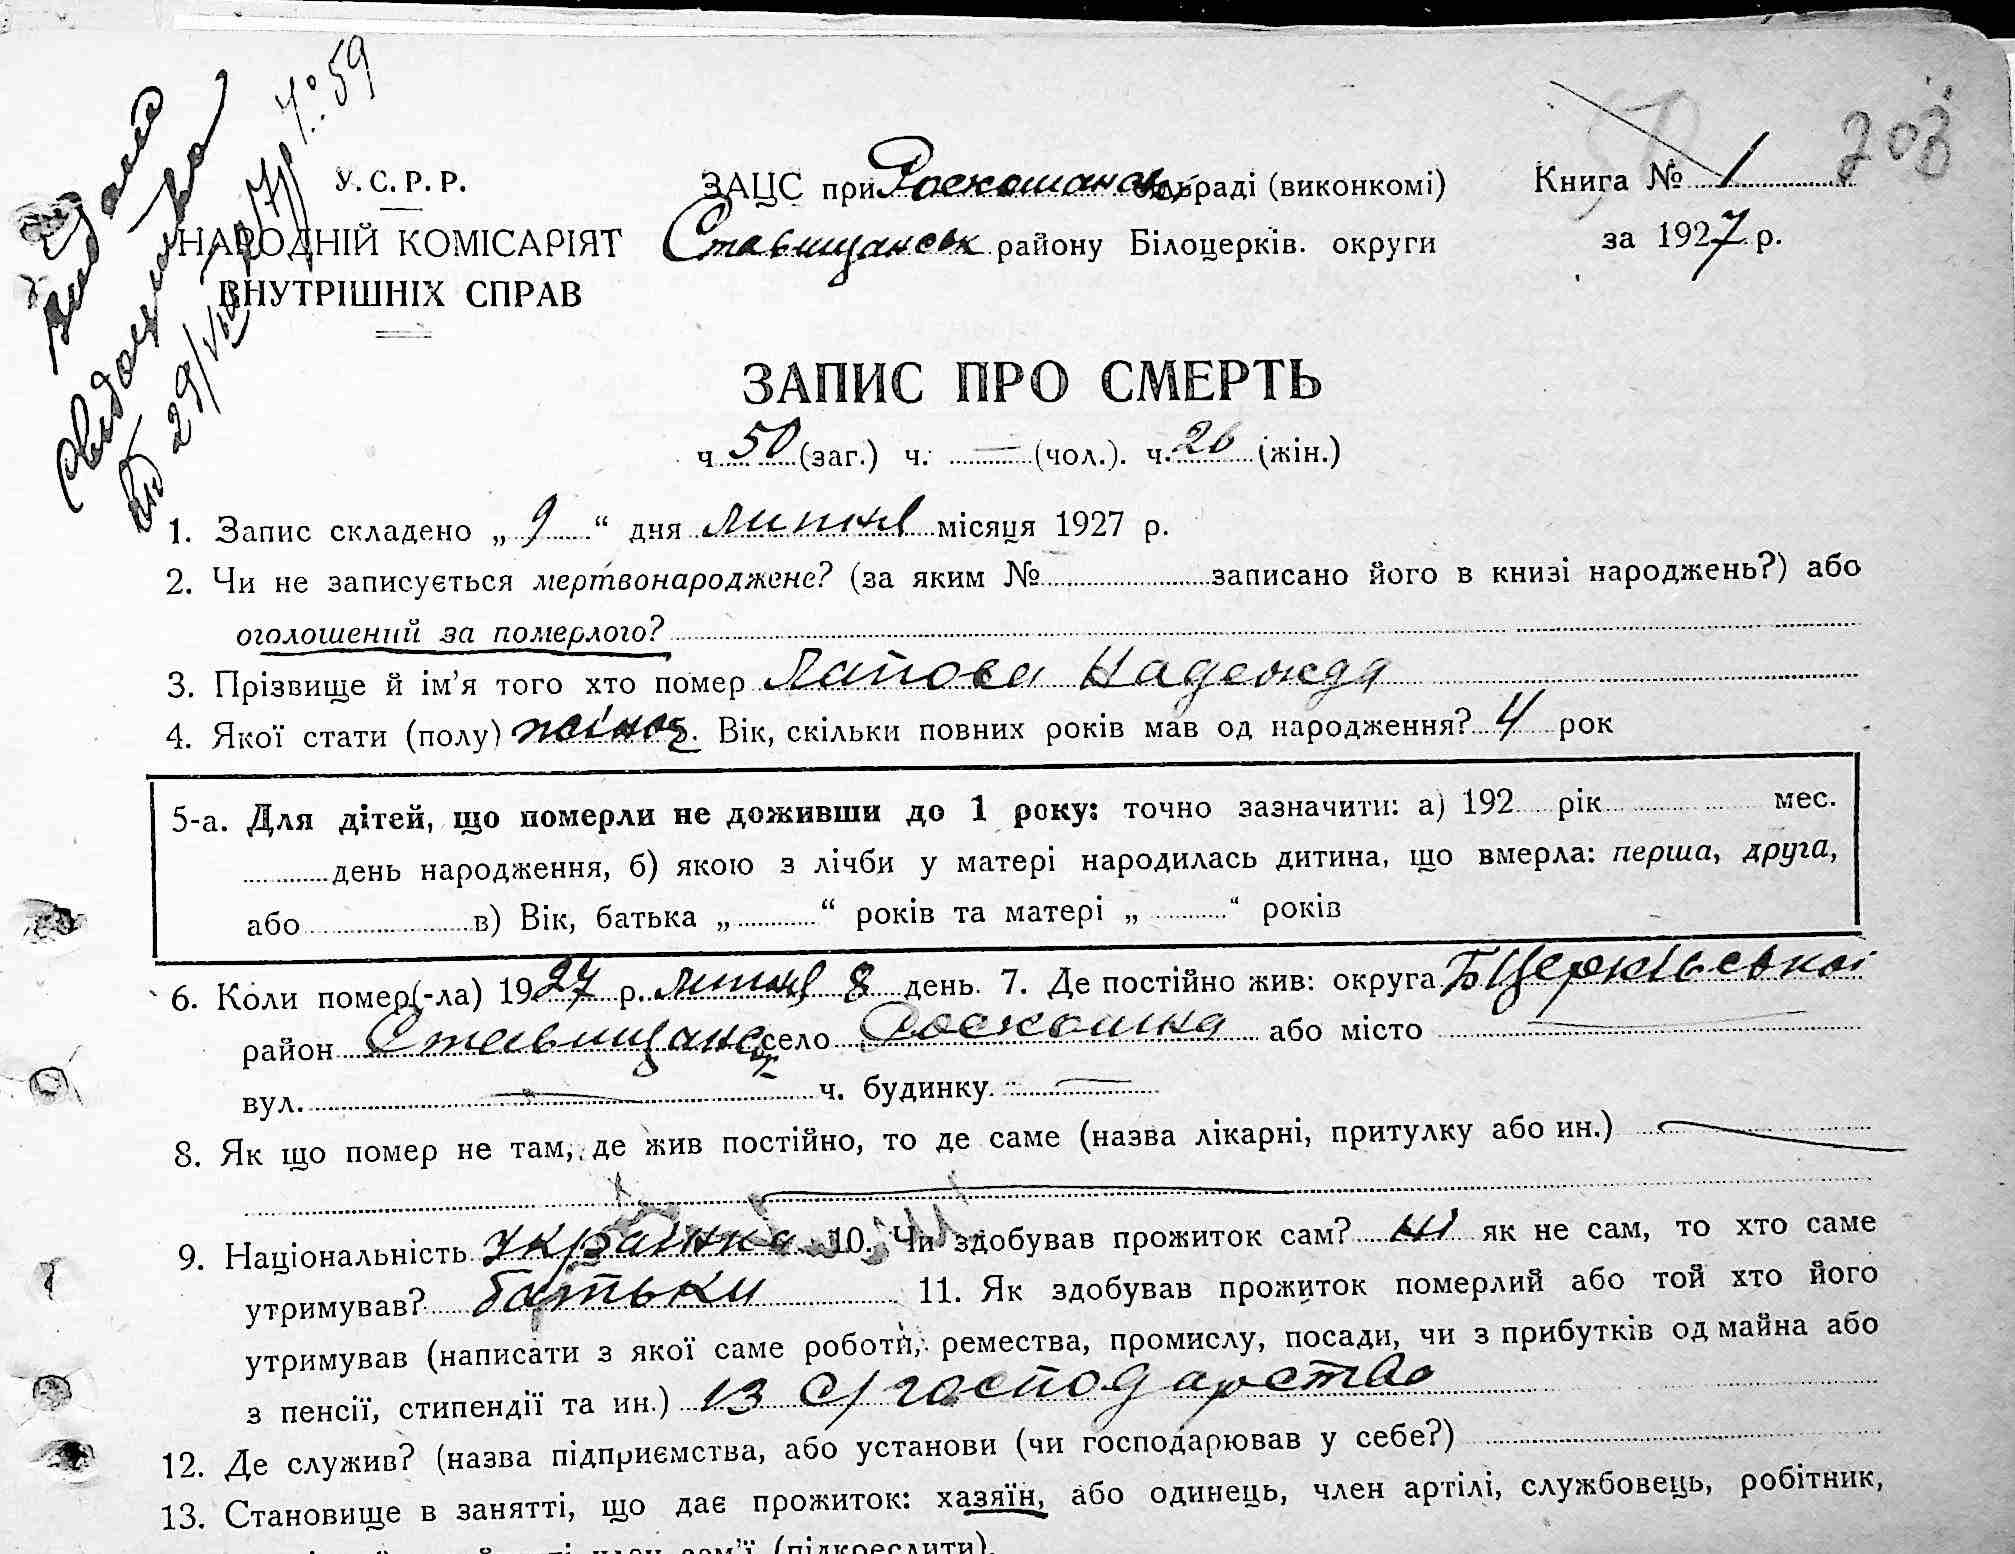 видано
свідоцтво
29/VII
№ 59
208
У.С.Р.Р.
НАРОДНІЙ КОМІСАРІЯТ
ВНУТРІШНІХ СПРАВ
ЗАЦС при Роскошанск сільраді (виконкомі)
Ставищанськ району Білоцерків. округи
Книга № 1
за 1927 р.
ЗАПИС ПРО СМЕРТЬ
ч 50 (заг.) ч. — (чол.). ч. 26 (жін.)
1. Запис складено „ 9 “ дня липня місяця 1927 р.
2. Чи не записується мертвонароджене? (за яким № записано його в книзі народжень?) або
оголошений за померлого?
3. Прізвище й ім’я того хто помер Лапова Надежда
4. Якої стати (полу) жіноч. Вік, скільки повних років мав од народження? 4 рок
5-а. Для дітей, що померли не доживши до 1 року: точно зазначити: а) 192 рік мес.
день народження, б) якою з лічби у матері народилась дитина, що вмерла: перша, друга,
або в) Вік, батька „ “ років та матері „ “ років
6. Коли помер(-ла) 1927 р. липня 8 день. 7. Де постійно жив: округа БЦерківської
район Ставищанськ село Роскошна або місто —
вул. — ч. будинку. —
8. Як що помер не там, де жив постійно, то де саме (назва лікарні, притулку або ин.) —
9. Національність українка 10. Чи здобував прожиток сам? ні як не сам, то хто саме
утримував? батьки 11. Як здобував прожиток померлий або той хто його
утримував (написати з якої саме роботи, ремества, промислу, посади, чи з прибутків од майна або
з пенсії, стипендії та ин.) із с/господарства
12. Де служив? (назва підприємства, або установи (чи господарював у себе?)
13. Становище в занятті, що дає прожиток: хазяїн, або одинець, член артілі, службовець, робітник,
член сем’ї (підкреслити).